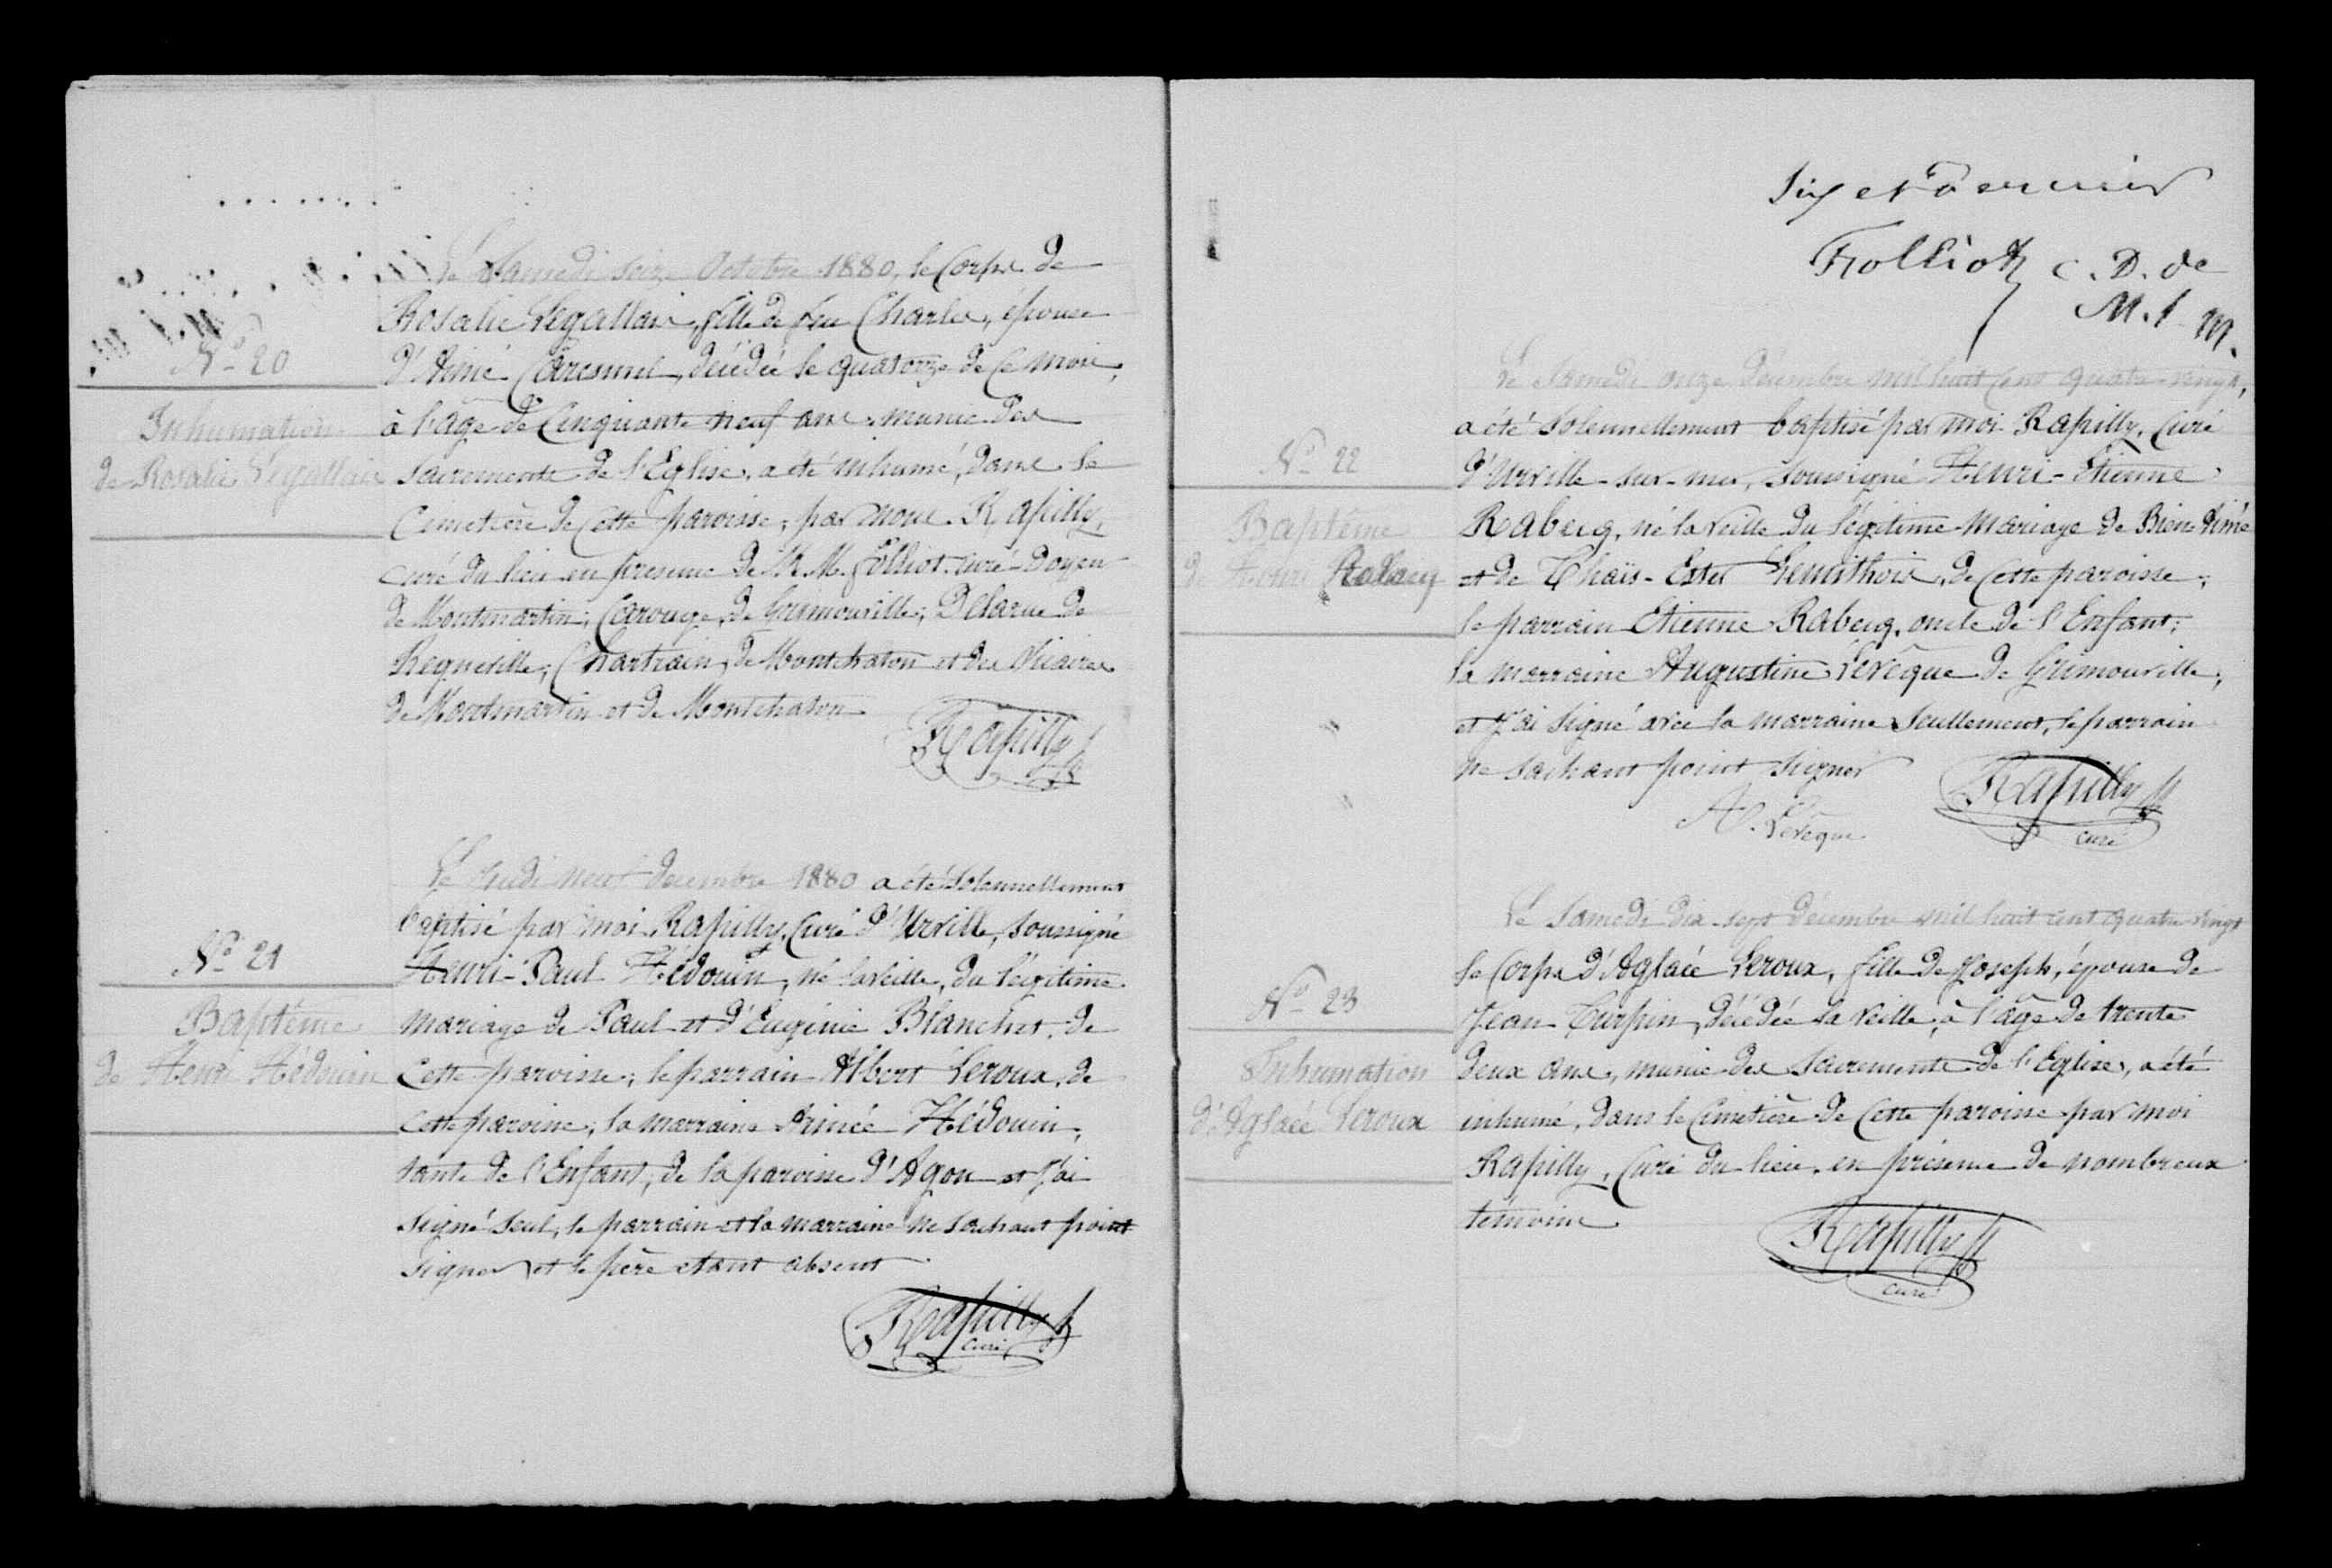 Le Samedi seize Octobre 1880, le Corps de
Rosalie Legallais, fille de feu Charles, épouse
d'Aimé Caresmel, décédée le quatorze de ce mois,
à l'âge de Cinquante neuf ans munie des
Sacrements de l'Eglise, a été inhumé, dans le
Cimetière de Cette paroisse, par nous Rapilly,
curé du lieu en presence de M.M. Folliot curé-Doyen
de Montmartin; Carouge, de Grimouville; Delarue de
Regneville; Chartrain, de Montchaton et des Vicaires
de Montmartin et de Montchaton
Rapilly
No 20
Inhumation
de Rosalie Legallais
Le Jeudi neuf Decembre 1880 a été Solennellement
baptisé par moi Rapilly, Curé d'Urville, soussigné
Henri-Paul Hédouin, né la veille, du légitime
mariage de Paul et d'Eugénie Blanchet, de
Cette paroisse; le parrain Albert Leroux, de
cette paroisse; la marraine Aimée Hédouin,
tante de l'Enfant, de la paroisse d'Agon et j'ai
Signé seul, le parrain et la marraine ne sachant point
signer et le père etant absent
Rapilly
curé
No 21
Baptême
de Henri Hédouin
Six et dernier
Folliot C. D. de
M. S. M.
Le Samedi onze Décembre mil huit cent quatre-vingt,
a été Solennellement baptisé par moi Rapilly, Curé
d'Urville-sur-mer, soussigné Henri-Etienne
Rabecq, né la veille du légitime mariage de Bien-Aimé
et de Thaïs-Ester Lemithois, de Cette paroisse;
le parrain Etienne Rabecq, oncle de l'Enfant;
la marraine Augustine Levêque de Grimouville,
et j'ai signé avec la marraine Seullement, le parrain
ne sachant point signer
A. Levêque
Rapilly
curé
No 22
Baptême
de Henri Rabecq
Le Samedi dix-sept Décembre mil huit cent quatre vingt
le Corps d'Aglaée Leroux, fille de Joseph, épouse de
Jean Turpin, décédée la veille, à l'âge de trente
deux ans, munie des Sacrements de l'Eglise, a été
inhumé, dans le Cimetière de Cette paroisse par moi
Rapilly, Curé du lieu, en présence de nombreux
témoins
Rapilly
curé
No 23
Inhumation
d'Aglaée Leroux